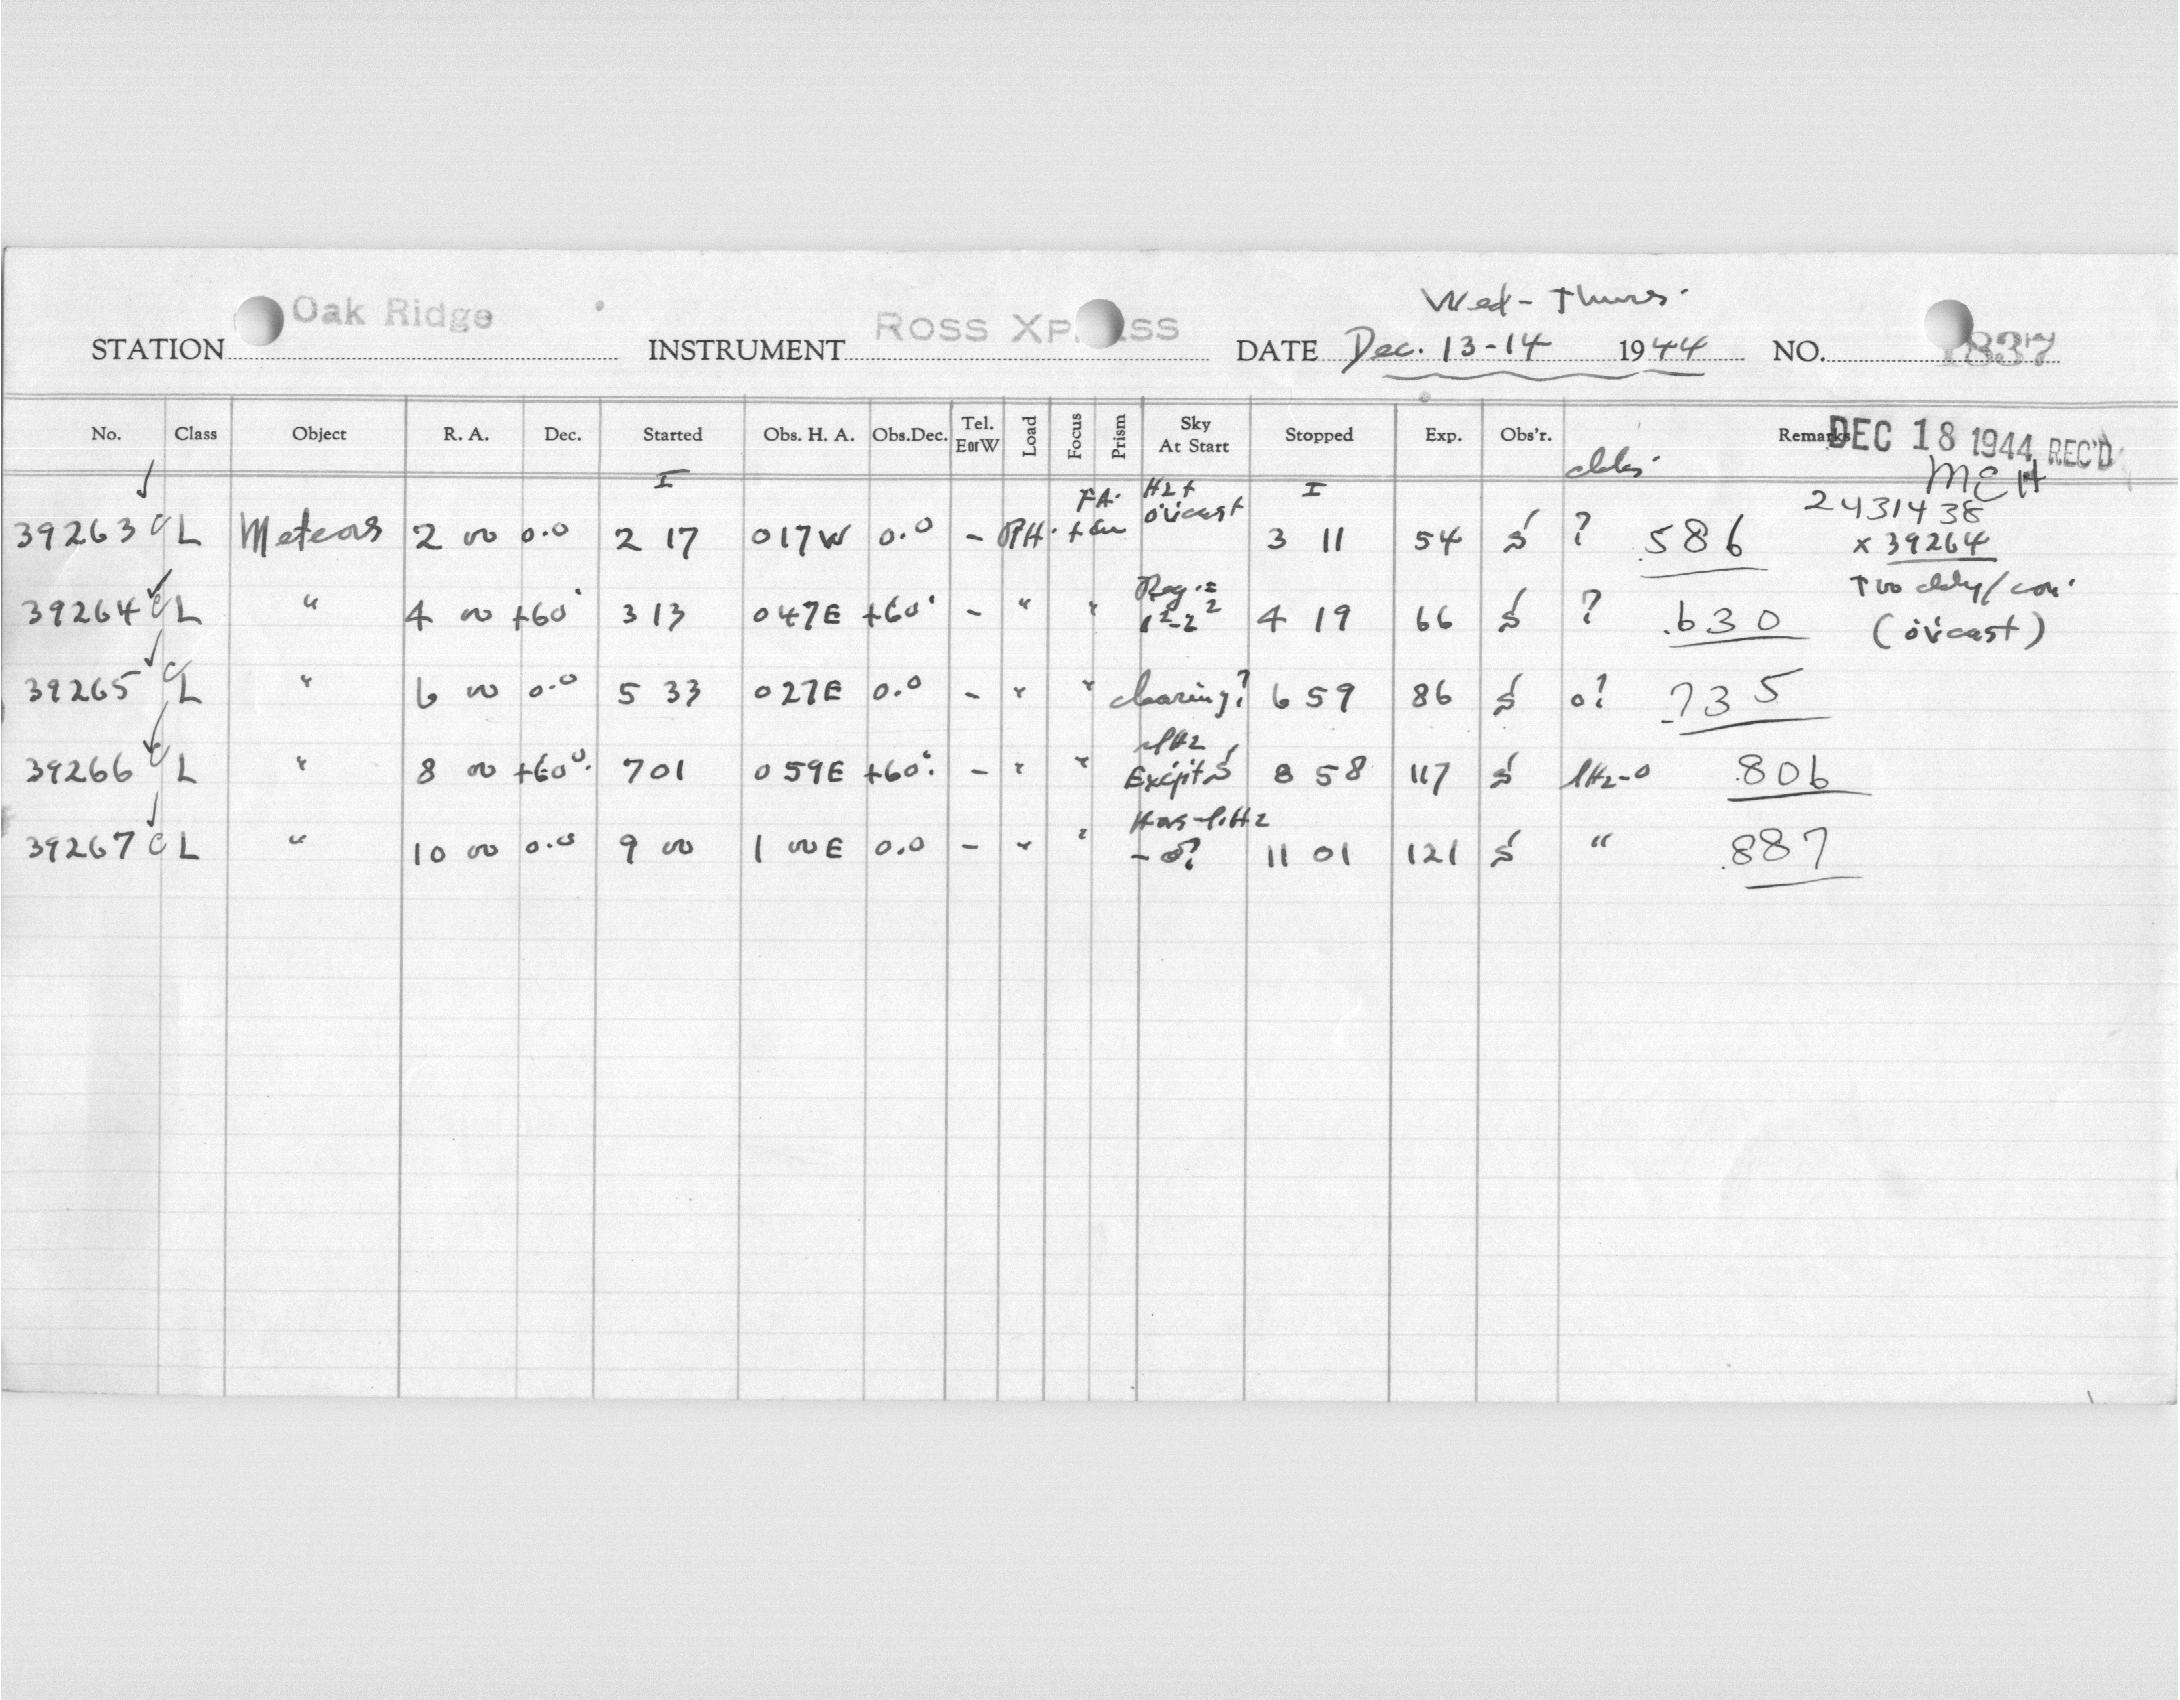 Wed - Thurs.
STATION Oak Ridge INSTRUMENT ROSS XPRESS DATE Dec. 13-14 1944 NO. 1837
No. Class Object R. A. Dec. Started Obs. H. A. Obs.Dec. Tel. E or W Load Focus Prism Sky At Start Stopped Exp. Obs'r. Remarks DEC 18 1944 REC'D
MEH
I I 2431438
39263 C L Meteors 2 00 0.0 2 17 0 17 W 0.0 - PH. FA. Hz + ov'cast 3 11 54 S ? .586 x 39264
39264 C L " 4 00 +60° 3 13 0 47 E +60° - " " 4 19 66 S ? .630 (ov'cast)
39265 C L " 6 00 0.0 5 33 0 27 E 0.0 - " " clearing? 6 59 86 S 0? .735
39266 C L " 8 00 +60°. 7 01 0 59 E +60°. - " " 8 58 117 S lHz-0 .806
39267 C L " 10 00 0.0 9 00 1 00 E 0.0 - " " 11 01 121 S " .887